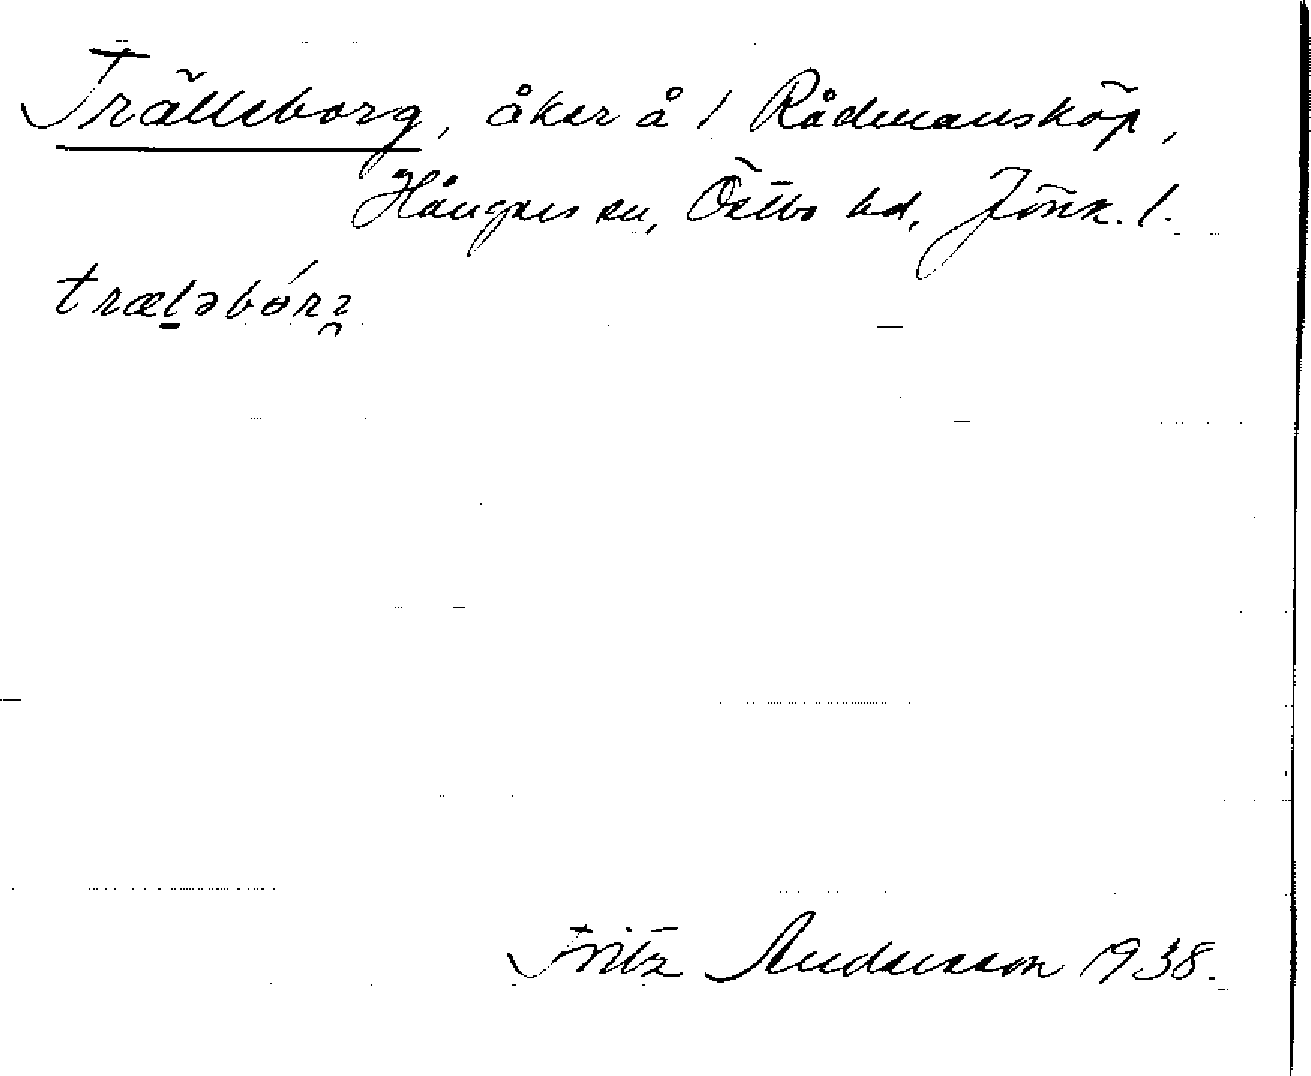 Trälleborg, åker å 1 Rådmansköp,
Hånger sn, Östbo hd, Jönk. l.
træl̠əbórʒ
Fritz Andersson 1938.